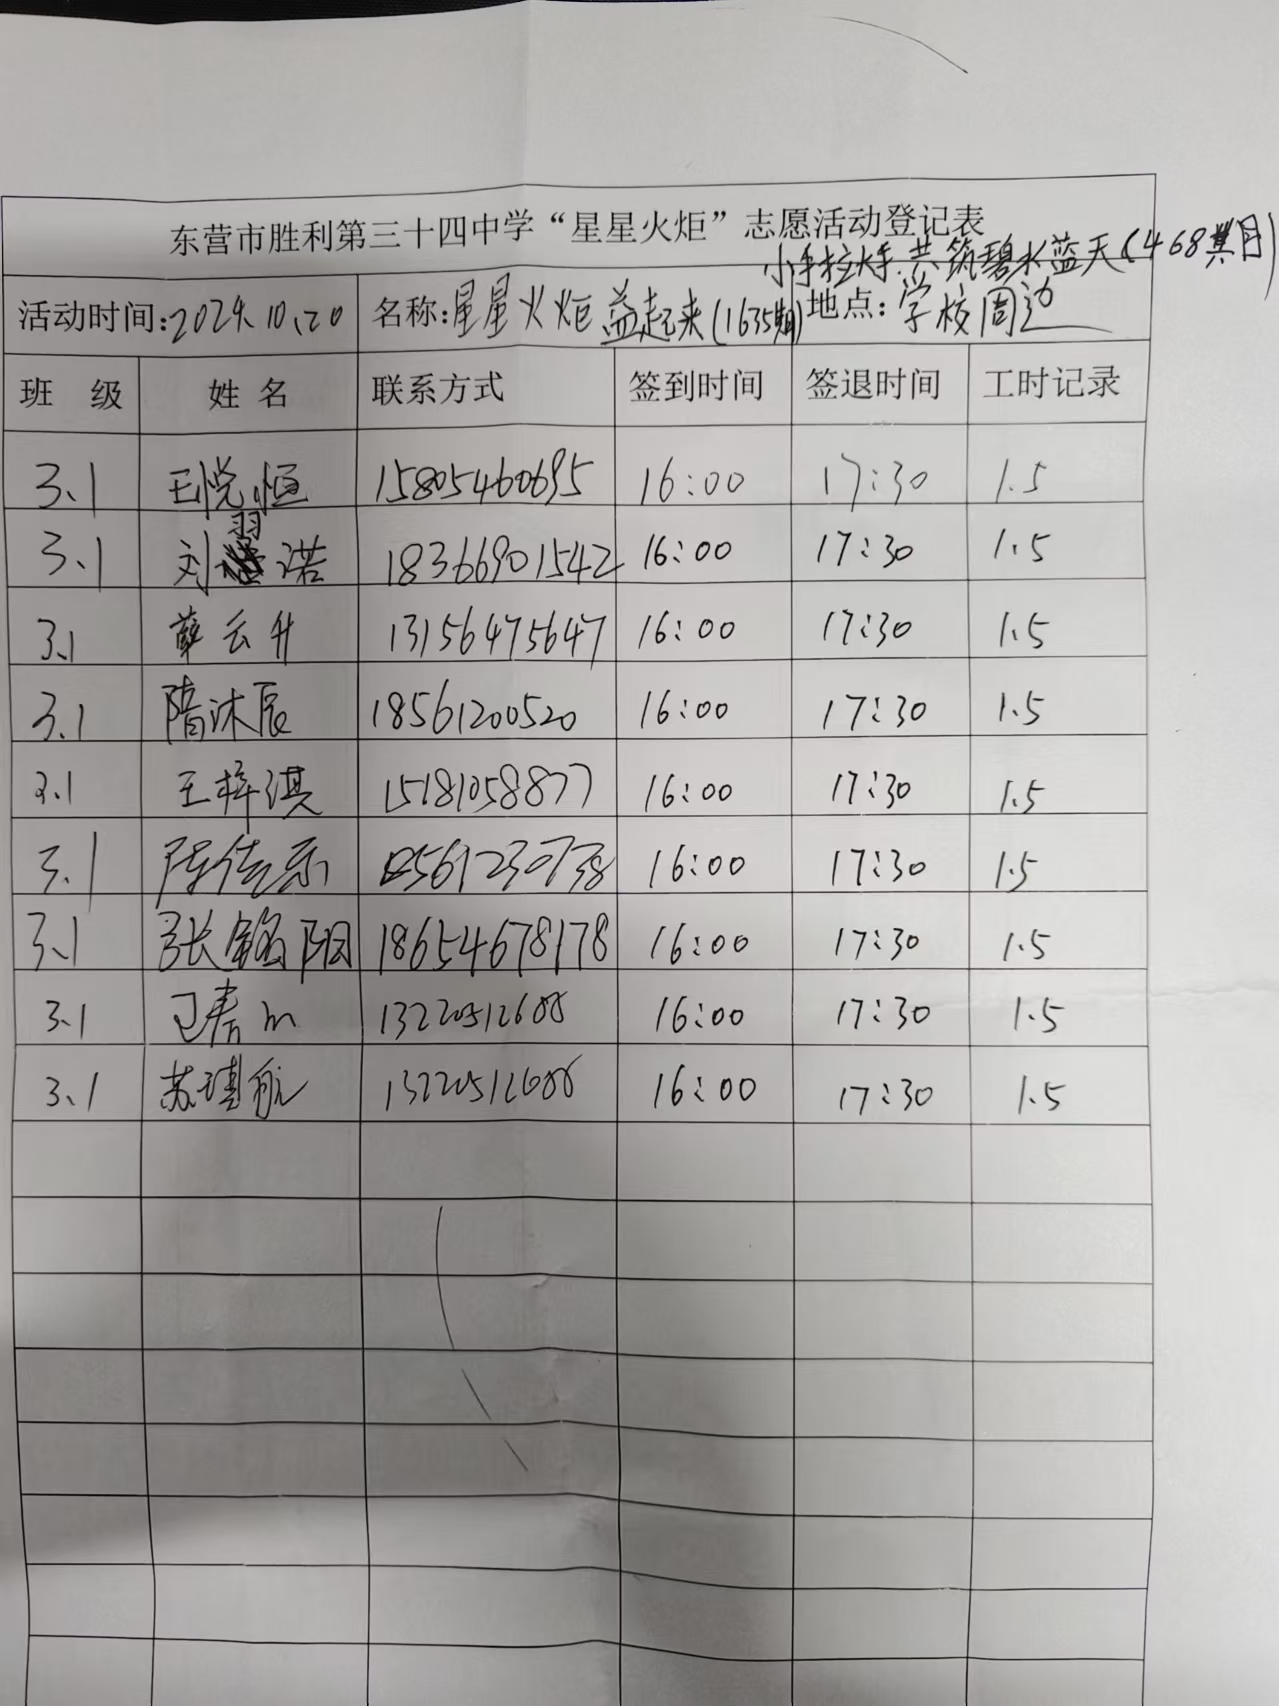 东营市胜利第三十四中学“星星火炬”志愿活动登记表
小手拉大手 共筑碧水蓝天(468期)
活动时间:2024.10.20 名称:星星火炬益起来(1635期) 地点:学校周边
班 级 姓 名 联系方式 签到时间 签退时间 工时记录
3.1 王悦恒 15805460695 16:00 17:30 1.5
3.1 刘翌诺 18366901542 16:00 17:30 1.5
3.1 薛云升 13156475647 16:00 17:30 1.5
3.1 隋沐辰 18561200520 16:00 17:30 1.5
3.1 王梓淇 15181058877 16:00 17:30 1.5
3.1 16:00 17:30 1.5
3.1 张铭阳 18654678178 16:00 17:30 1.5
3.1 16:00 17:30 1.5
3.1 苏琪航 16:00 17:30 1.5